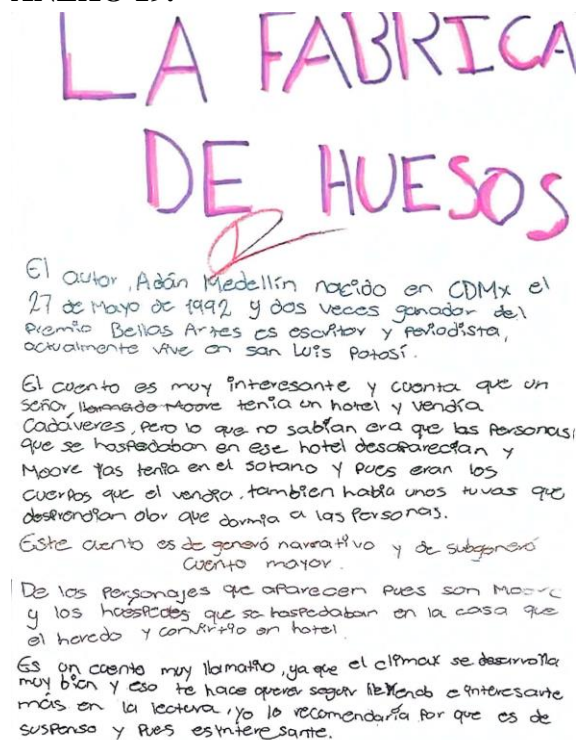 ANEXO 19.
LA FABRICA
DE HUESOS
El autor, Adán Medellín nacido en CDMX el
27 de Mayo de 1992 y dos veces ganador del
Premio Bellas Artes es escritor y periodista,
actualmente vive en san Luis Potosí.
El cuento es muy interesante y cuenta que un
señor, llamado Moore tenía un hotel y vendía
Cadáveres, pero lo que no sabían era que las personas,
que se hospedaban en ese hotel desaparecian y
Moore las tenia en el sotano y pues eran los
cuerpos que el vendia, tambien habia unos tuvas que
desprendian olor que dormia a las Personas.
Este cuento es de generó narrativo y de subgeneró
cuento mayor.
De los Personajes que aparecen pues son Moore
y los huespedes que se hospedaban en la casa que
el heredo y convirtio en hotel.
Es un cuento muy llamativo, ya que el climax se desarrolla
muy bien y eso te hace querer seguir lellendo e interesarte
más en la lectura, yo lo recomendaría por que es de
suspenso y pues es interesante.